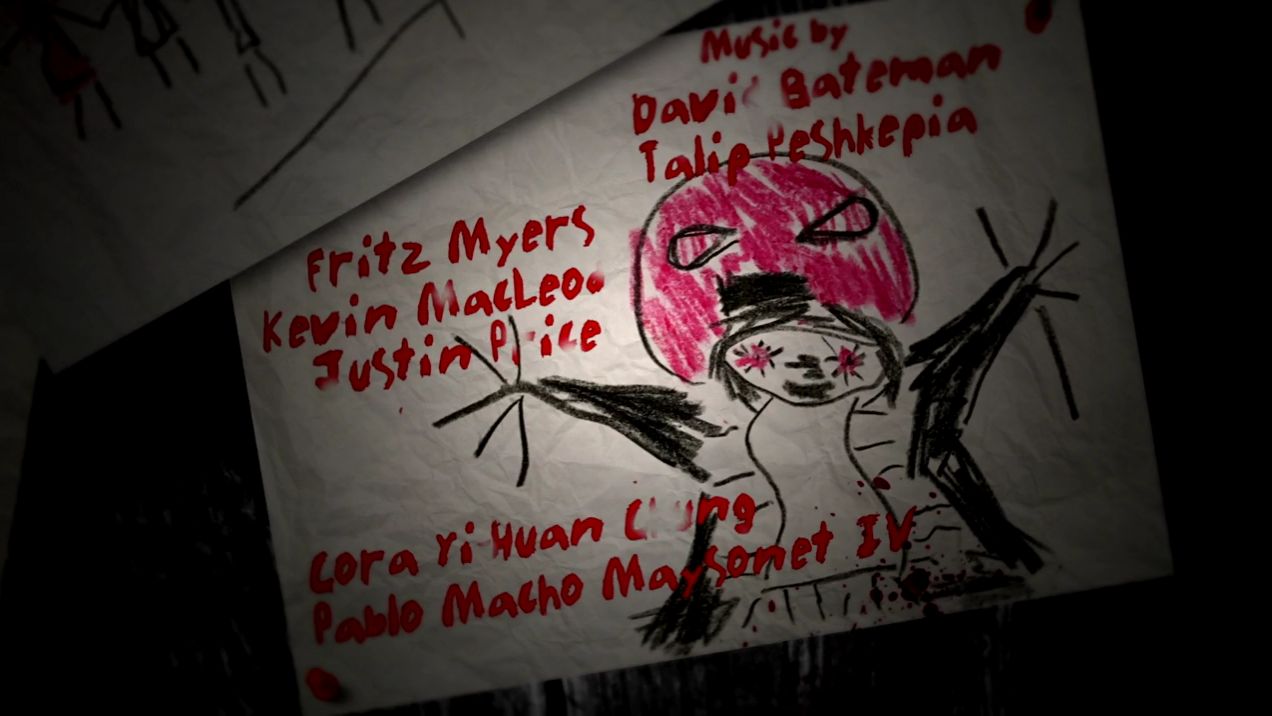 Music by
David Bateman
Talip Peshkepia
Fritz Myers
Kevin MacLeod
Justin Price
Cora Yi Huan Chung
Pablo Macho Maysonet IV